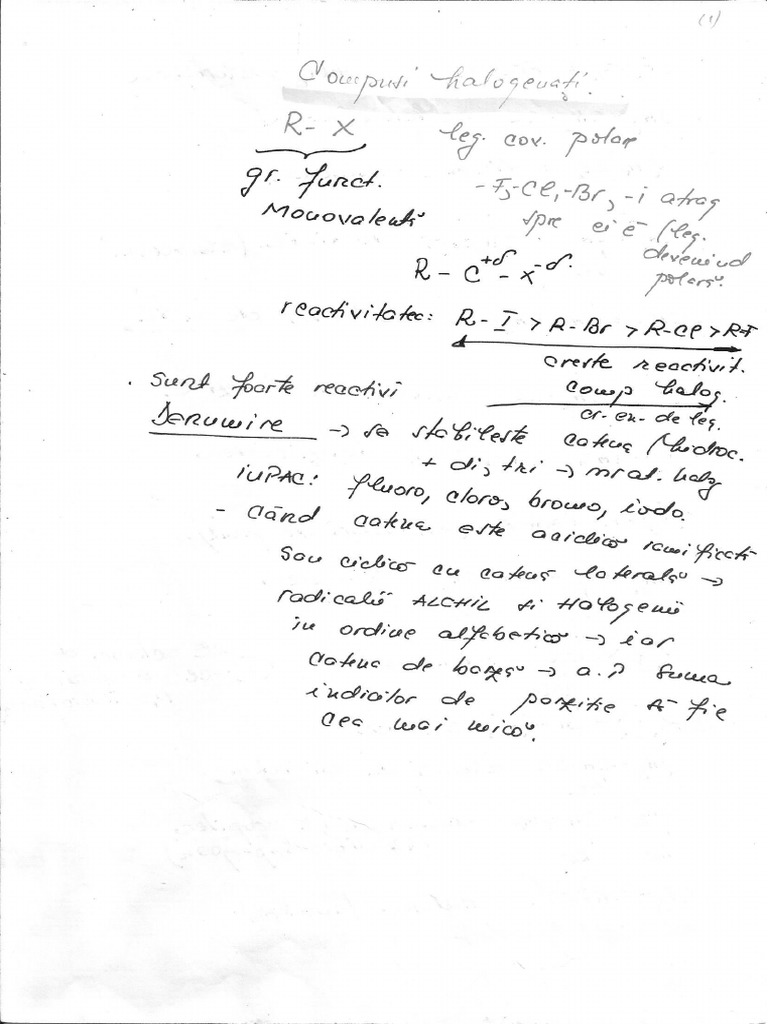 (1)
Compusi halogenati.
R - X leg. cov. polar
gr. funct. -F, -Cl, -Br, -i atrag
Monovalentă spre ei e- (leg.
devenind
R - C+δ - X-δ. polară.
reactivitatea: R - I > R-Br > R-Cl > R-F
creste reactivit.
. sunt foarte reactivi comp halog.
cr. en. de leg.
Denumire → se stabileste catena (hidroc.
+ di, tri → nr at. halg
iUPAC: fluoro, cloro, bromo, iodo.
- Când catena este aciclică ramificată
sau ciclică cu catenă laterală →
radicalii ALCHIL si HAlogenii
in ordine alfabetică → iar
catena de bază → a.î suma
indicilor de pozitie să fie
cea mai mică.